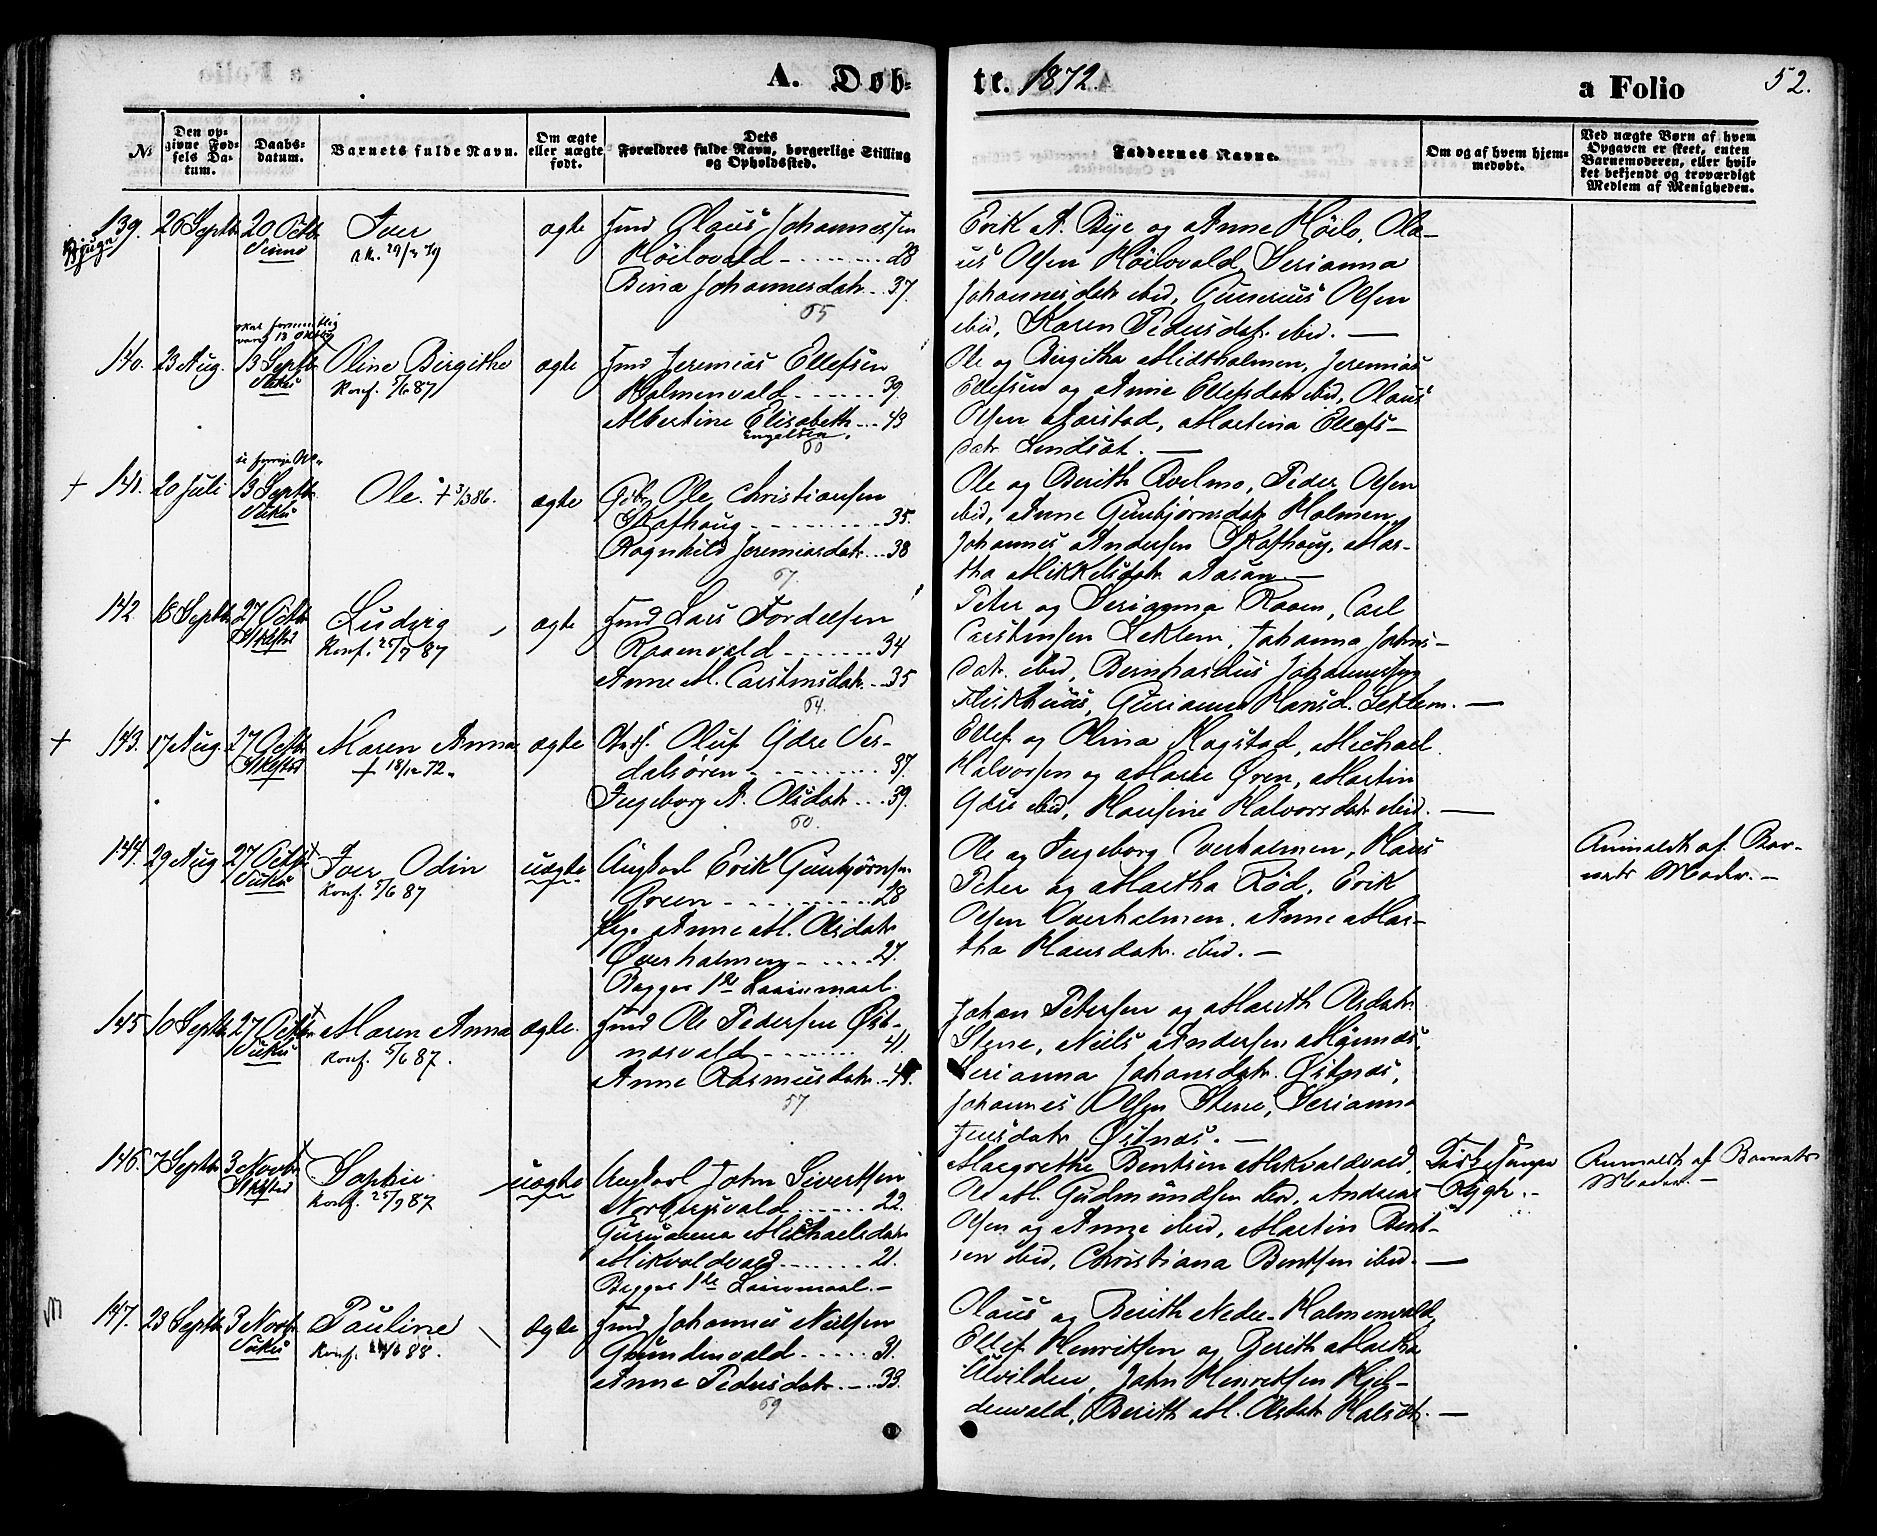 A. Døb-
te. 1872.
a Folio 52.
№
Den op-
givne Fød-
sels Da-
tum.
Daabs-
datum.
Barnets fulde Navn.
Om ægte
eller uægte
født.
Dets
Forældres fulde Navn, borgerlige Stilling
og Opholdssted.
Faddernes Navne.
Om og af hvem hjem-
medøbt.
Ved uægte Børn af hvem
Opgaven er skeet, enten
Barnemoderen, eller hvil-
ket bekjendt og troværdigt
Medlem af Menigheden.
139. 26 Septbr 20 Octbr Iver ægte
Olaus Johannessen
Høilovald 28
Bina Johannesdatr 37.
65
Erik A. Bye og Anne Høilo, Ola-
us Olsen Høilovald, Serianna
Johannesdatr ibid, Gunerius Olsen
ibid, Karen Pedersdatr ibid.
140. 23 Aug. 13 Septbr Oline Birgithe ægte
Konf. 5/6 87
Jeremias Ellefsen
Holmenvald 39.
Albertine Elisabeth 43
Engelsen.
60
Ole og Birgitha Midtholmen, Jeremias
Ellefsen og Anne Ellefsdatr ibid, Olaus
Olsen Aarstad, Martina Ellefs-
datr Lundsat.
141. 20 Juli 13 Septbr Ole. ægte
Ole Christiansen
Skafhaug 35.
Ragnhild Jeremiasdatr 38
67.
Ole og Berith Avelmo, Peder Olsen
ibid, Anne Gunbjørnsdatr Holmen,
Johannes Andersen Skafhaug, Mar-
tha Mikkelsdatr Aasan.
142 18 Septbr 27 Octbr Ludvig ægte
Konf. 25/9 87
Lars Tordelsen
Raaenvald 34
Anne M. Carstensdatr 35
64.
Peter og Serianna Raaen, Carl
Carstensen Leklem, Johanna Johns-
datr. ibid, Bernhardus Johannessen
Fleskhuus, Gurianna Hansd. Leklem.
143. 17 Aug. 27 Octbr Maren Anna ægte
† 18/12 72.
Oluf Gdre Ver-
dalsøren 37.
Ingeborg A. Olsdatr 39.
60.
Ellef og Olina Kogstad, Michael
Halvorsen og Marie Øren, Martin
ibid, Hansine Halvorsdatr ibid.
144. 29 Aug 27 Octbr Iver Odin uægte
Konf. 5/6 87
Ungkarl Erik Gunbjørnsen
Green 28
Pige Anne M. Olsdatr
Overholmen 27.
Begges 1ste Leiermaal.
Ole og Ingeborg Overholmen, Hans
Peter og Martha Rød, Erik
Olsen Overholmen, Anne Mar-
tha Hansdatr. ibid.
Anmeldt af Bar-
nets Moder.
145 16 Septbr 27 Octbr Maren Anna ægte.
Konf. 5/6 87.
Ole Pedersen Øst-
næsvald 41.
Anne Rasmusdatr
57
Johan Petersen og Marith Olsdatr
Stene, Niels Andersen
Serianna Johansdatr. Østnæs,
Johannes Olsen Stene, Serianna
Jensdatr Østnæs.
146. 7 Septbr 3 Novbr Sophie uægte
Konf. 25/9 87
Ungkarl John Sivertsen
Norbergsvald 22.
Gurianna Michaelsdatr
Mikvoldvald 21.
Begges 1ste Leiermaal
Margrethe Bentsen Mikvoldvald,
Ole M. Gudmundsen ibid, Andreas
Olsen og Anne ibid, Martin Bent-
sen ibid, Christiana Bentsen ibid.
Rygh.
Anmeldt af Barnets
Moder.
147. 23 Septbr 3 Novbr Pauline ægte
Konf. 88.
Johannes Nielsen
Grundenvald 31.
Anne Pedersdatr 33.
69
Olaus og Berith Nedre Holmenvald,
Ellef Henriksen og Berith Martha
Ulvilden, John Henriksen Kjel-
denvald, Berith M. Olsdatr